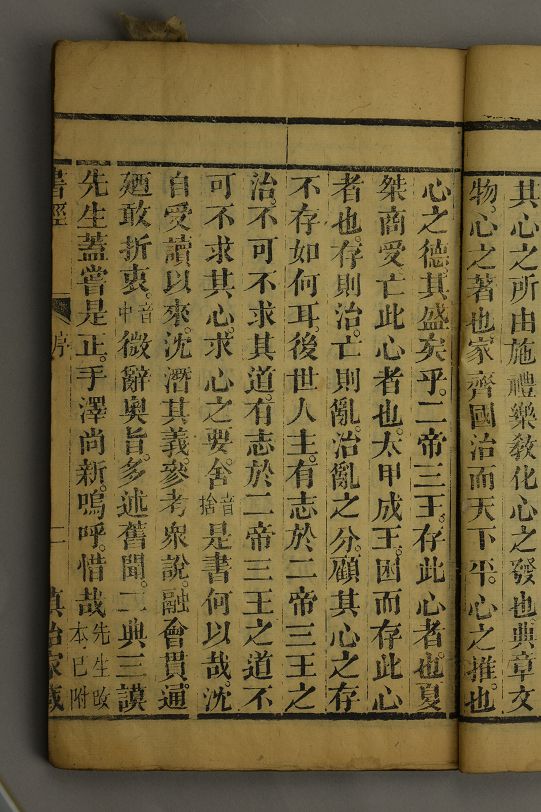 其心之所由施禮樂敎化心之發也典章文
物。心之著也家齊國治而天下平。心之推也
心之德其盛矣乎。二帝三王。存此心者也夏
桀商受亡此心者也。太甲成王。困而存此心
者也。存則治。亡則亂。治亂之分。顧其心之存
不存如何耳。後世人主。有志於二帝三王之
治。不可不求其道。有志於二帝三王之道不
可不求其心。求心之要。舍音捨是書何以哉。沈
自受讀以來。沈潛其義參考衆說。融會貫通
廼敢折衷。音中微辭奧旨。多述舊聞。二典三謨
先生蓋嘗是正。手澤尚新。嗚呼。惜哉先生改本已附
書經 序 二 慎詒家藏